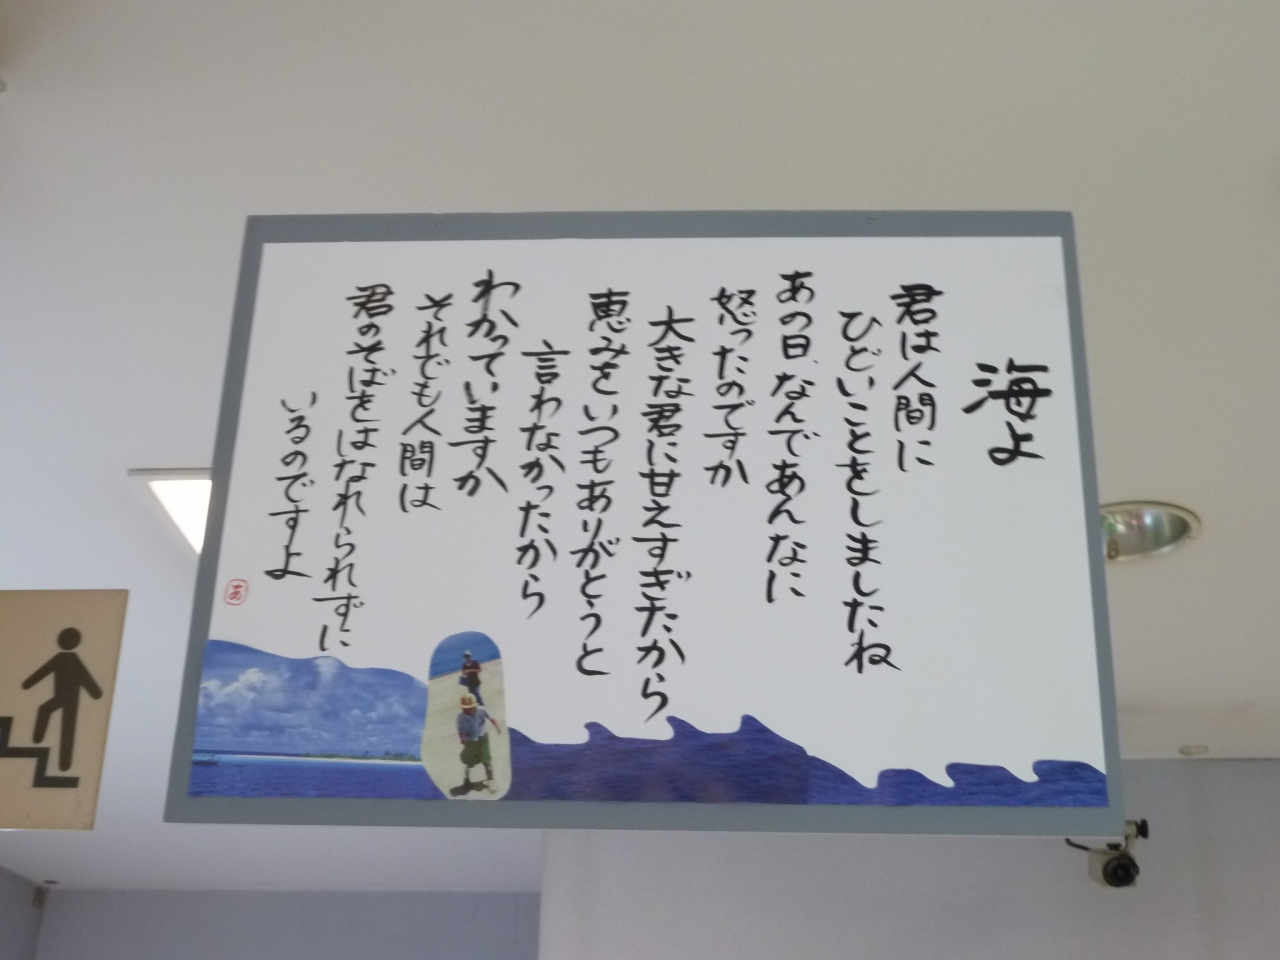 海よ
君は人間に
ひどいことをしましたね
あの日、なんであんなに
怒ったのですか
大きな君に甘えすぎたから
恵みをいつもありがとうと
言わなかったから
わかっていますか
それでも人間は
君のそばをはなれられずに
いるのですよ
あ